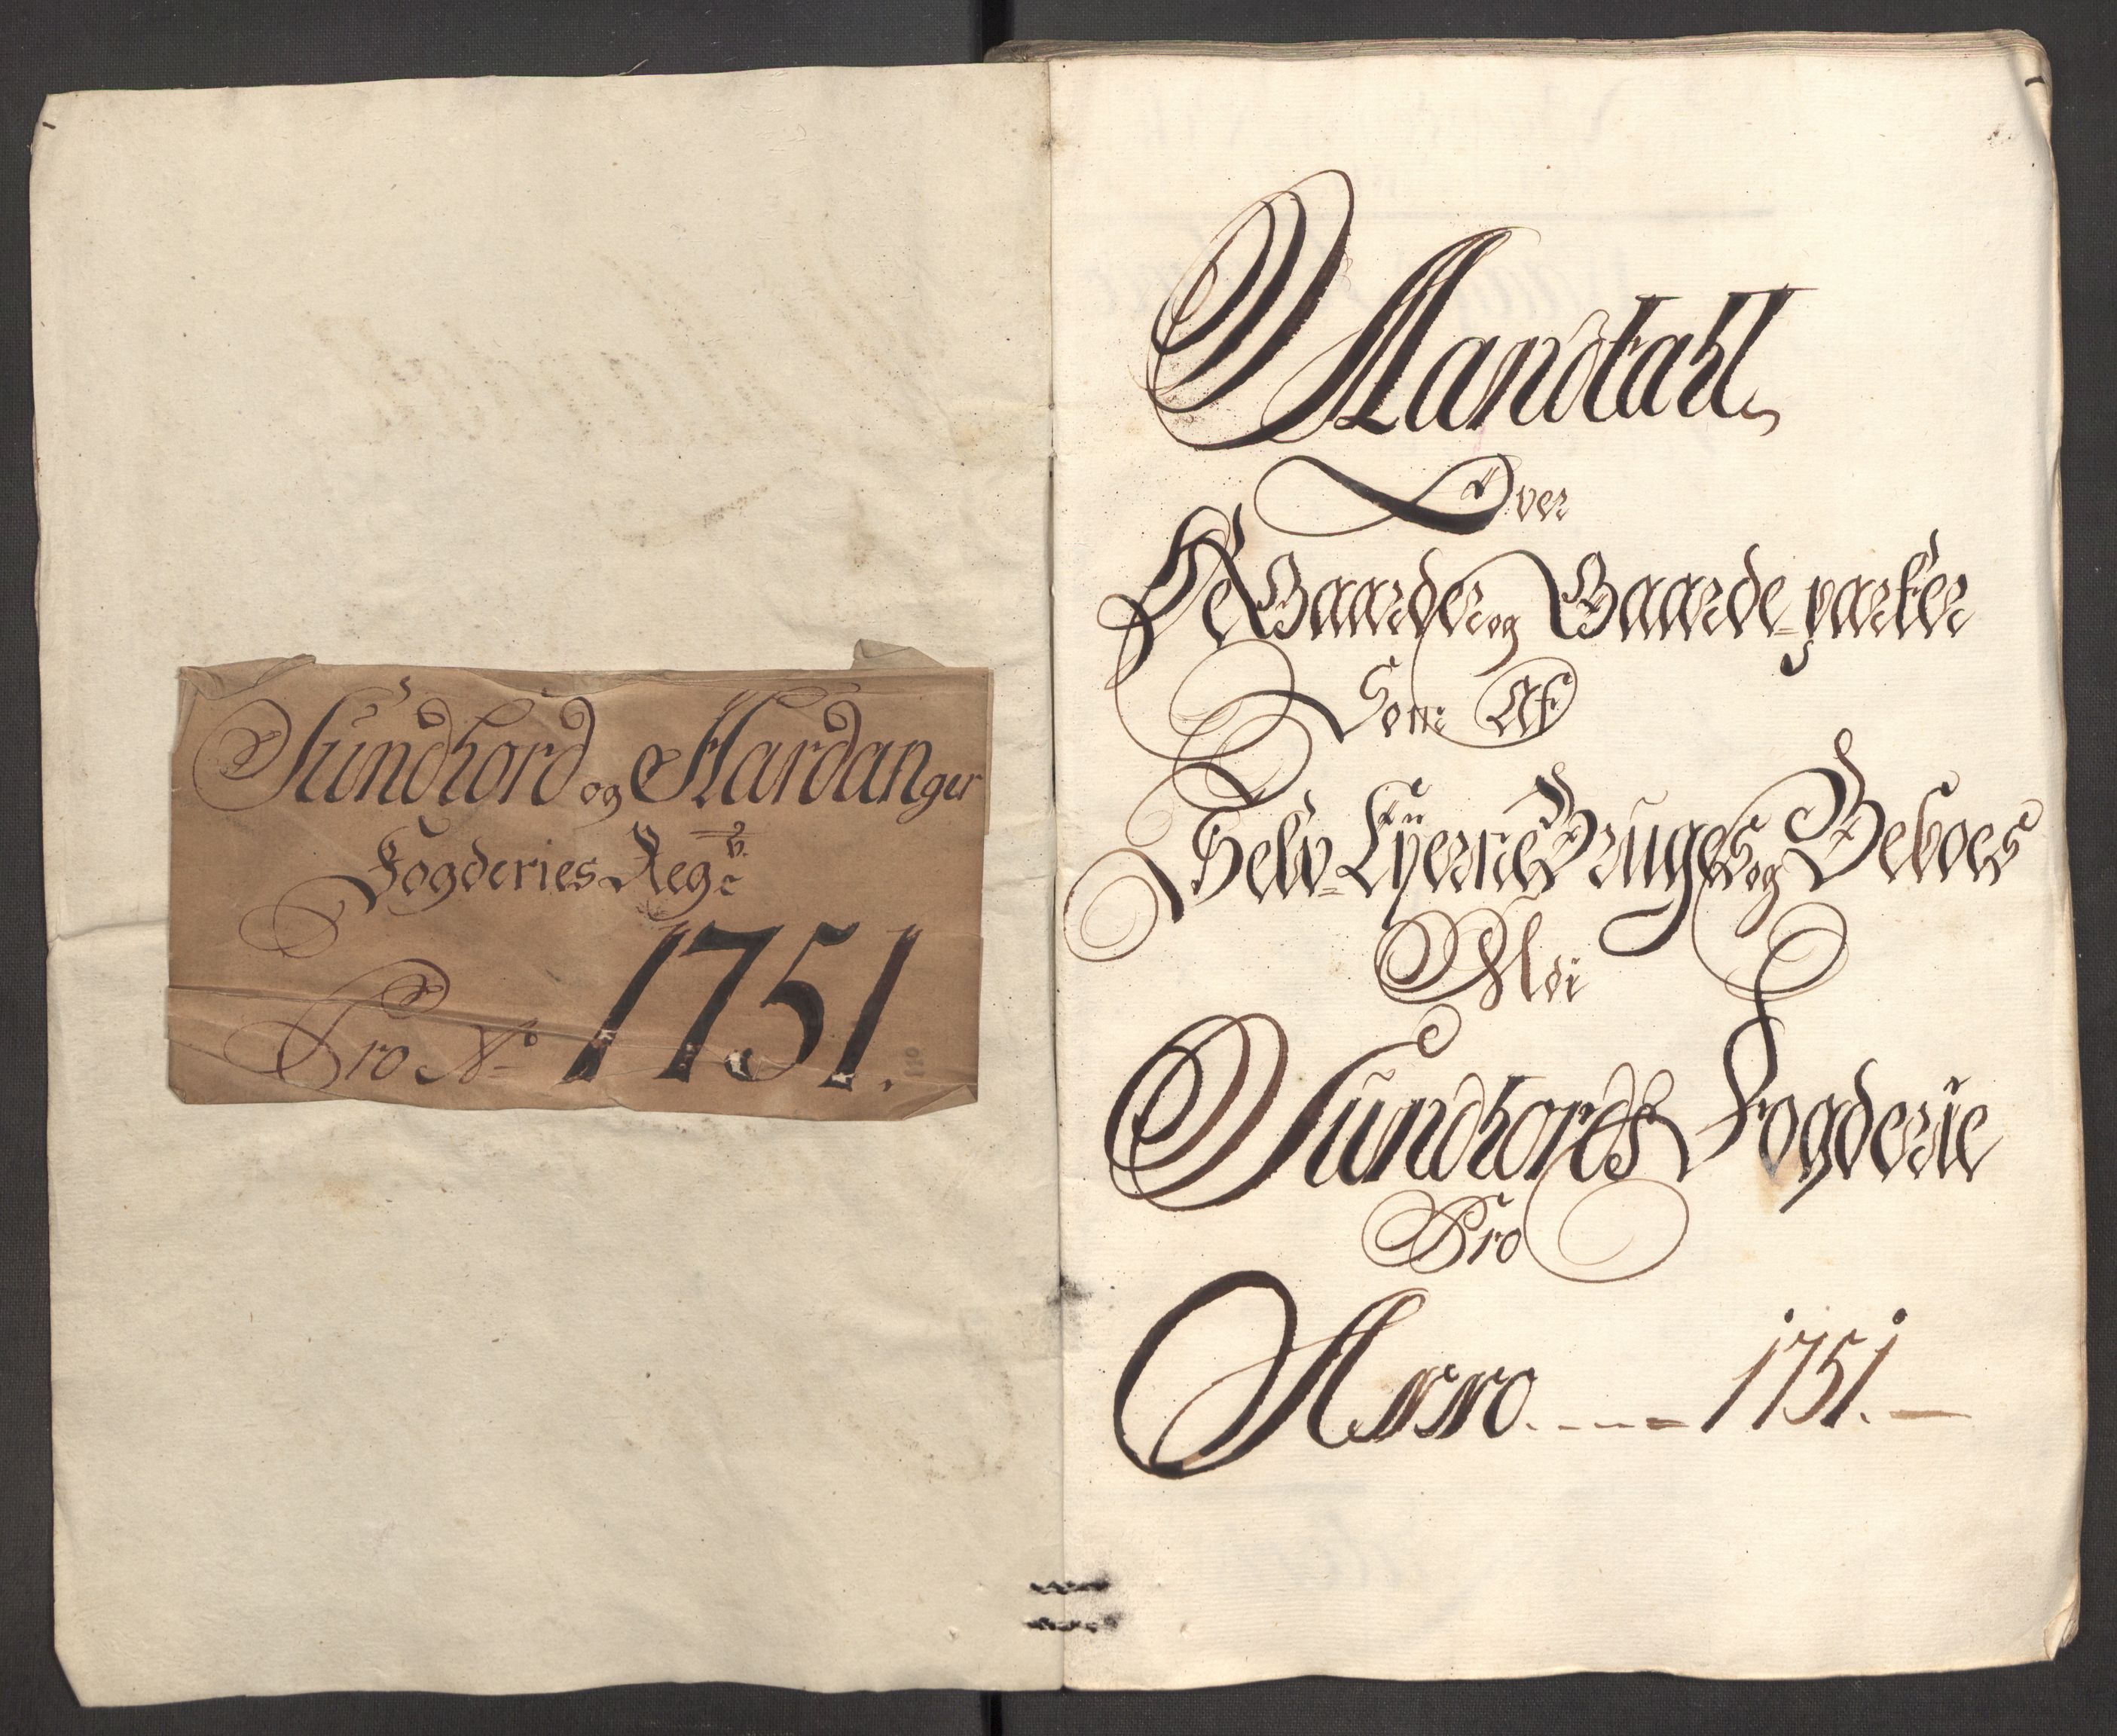 Sundhord og Hardanger
Fogderies Regr
Pro Ao 1751.
Mandtahl
Over
De Gaarder og Gaarde-parter
Som Af
Selv-Eyerne Bruges og Beboes
Udi
Sundhords Fogderie
Pro
Anno 1751.